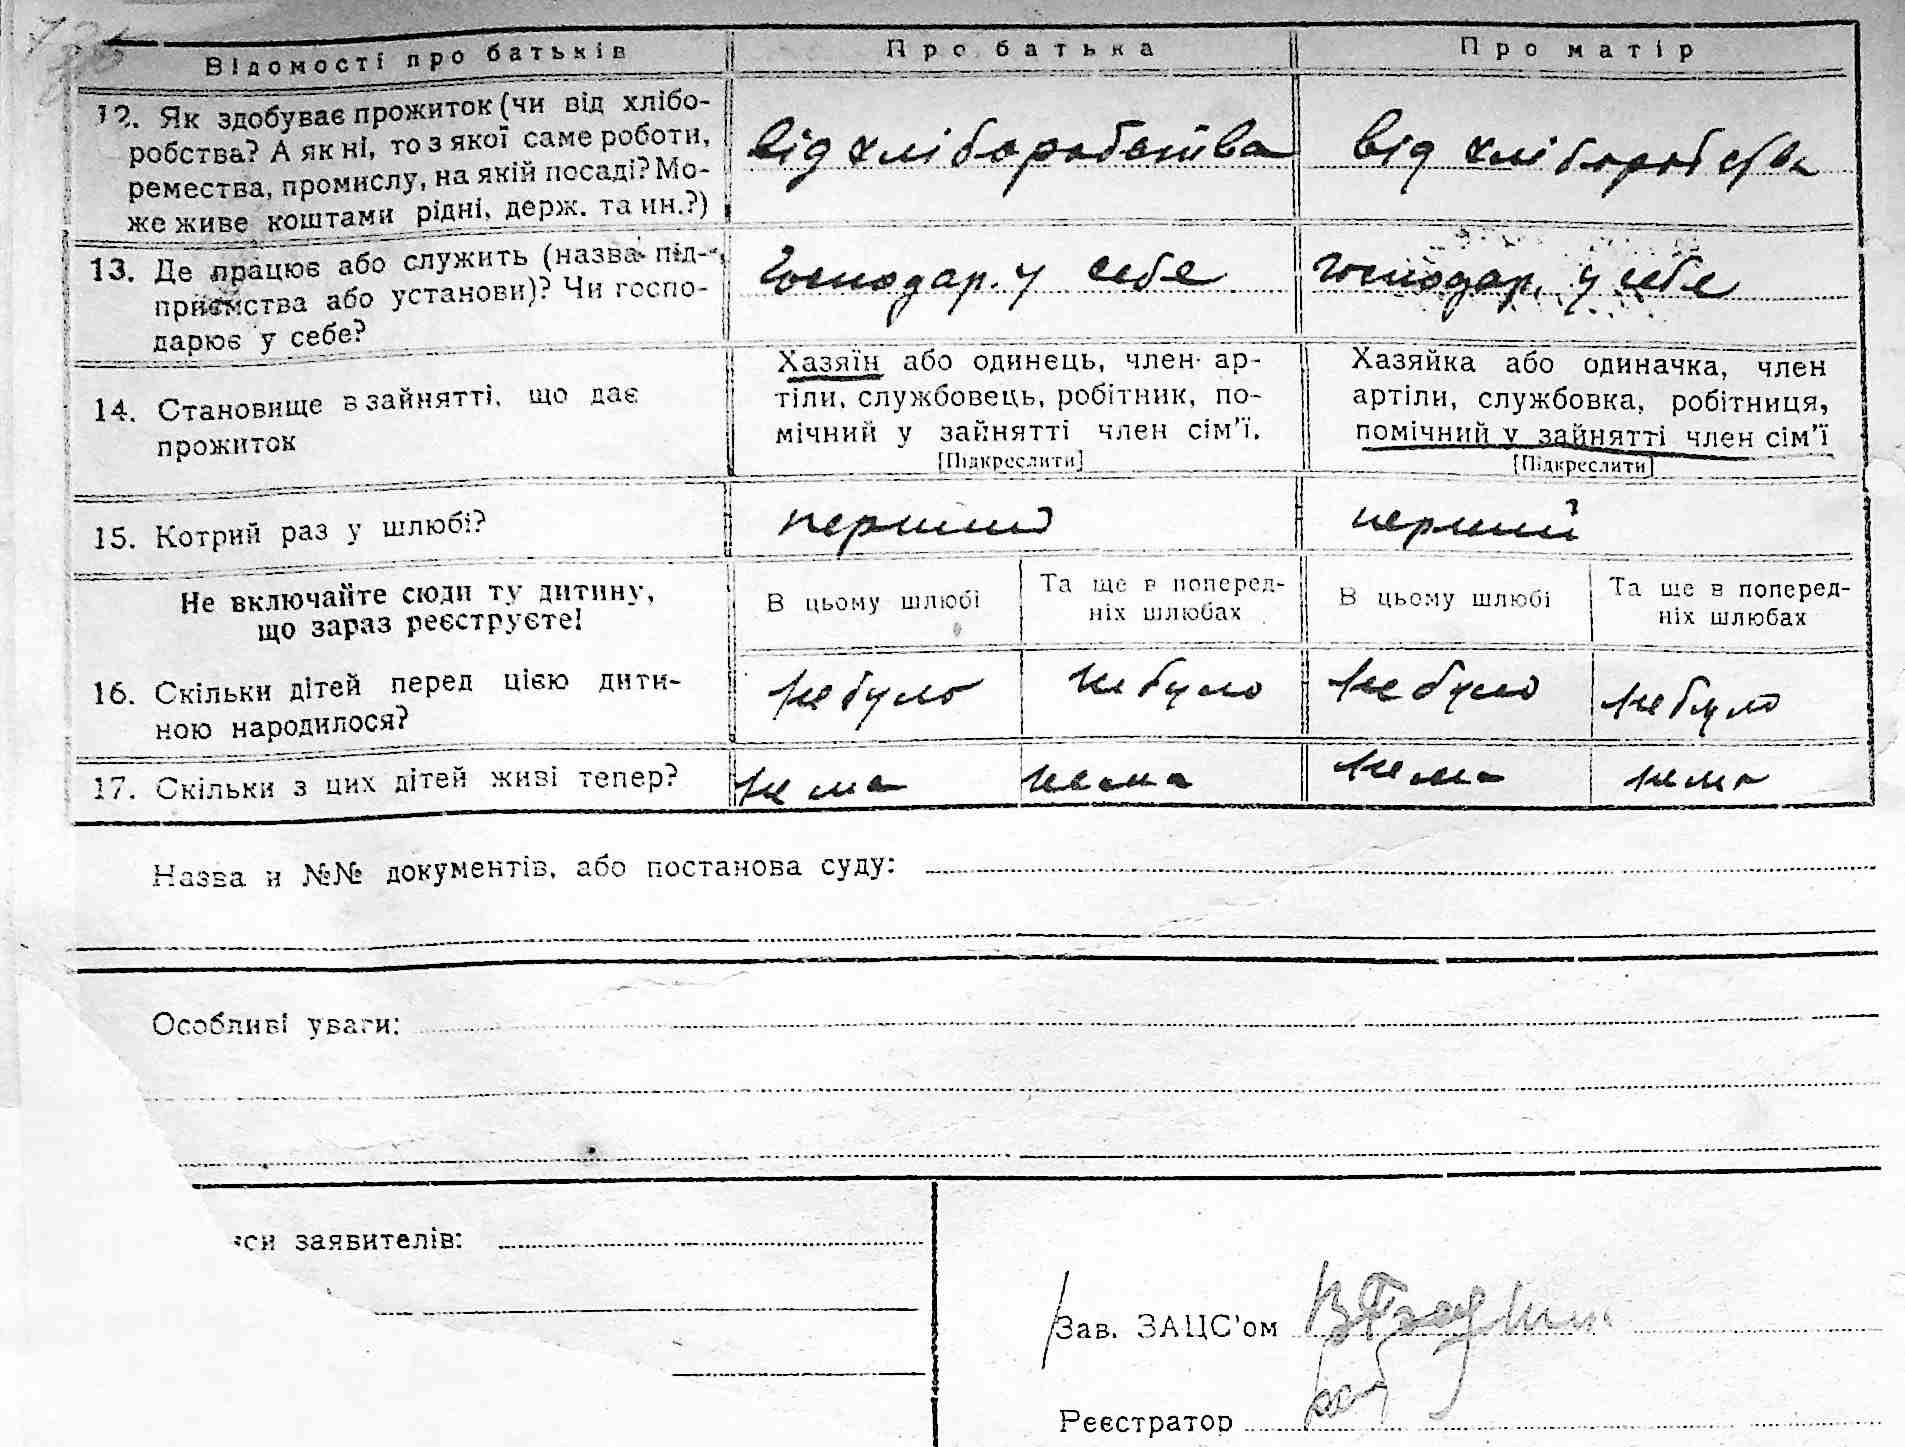 Відомості про батьків
Про батька
Про матір
12. Як здобуває прожиток (чи від хлібо-
робства? А як ні, то з якої саме роботи,
ремества, промислу, на якій посаді? Мо-
же живе коштами рідні, держ. та ин.?)
від хліборобства
від хліборобства
13. Де працює або служить (назва під-
приємства або установи)? Чи госпо-
дарює у себе?
Господар. у себе
господар. у себе
14. Становище в зайнятті, що дає
прожиток
Хазяїн або одинець, член ар-
тіли, службовець, робітник, по-
мічний у зайнятті член сім'ї.
[Підкреслити]
Хазяйка або одиначка, член
артіли, службовка, робітниця,
помічний у зайнятті член сім'ї
[Підкреслити]
15. Котрий раз у шлюбі?
перший
перший
Не включайте сюди ту дитину,
що зараз реєструєте!
В цьому шлюбі
Та ще в поперед-
ніх шлюбах
В цьому шлюбі
Та ще в поперед-
ніх шлюбах
16. Скільки дітей перед цією дити-
ною народилося?
не було
не було
не було
не було
17. Скільки з цих дітей живі тепер?
нема
нема
нема
нема
Назва и №№ документів, або постанова суду:
Особливі уваги:
си заявителів:
Зав. ЗАЦС'ом
Реєстратор